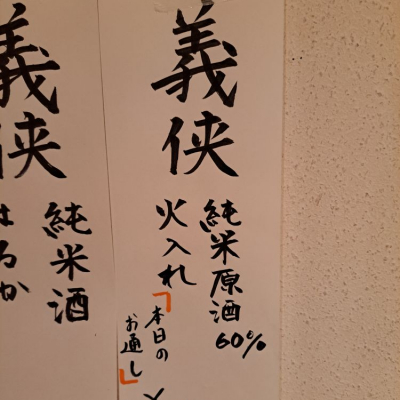 義侠
純米原酒
60%
火入れ
「本日の
お通し」
義侠
純米酒
はるか